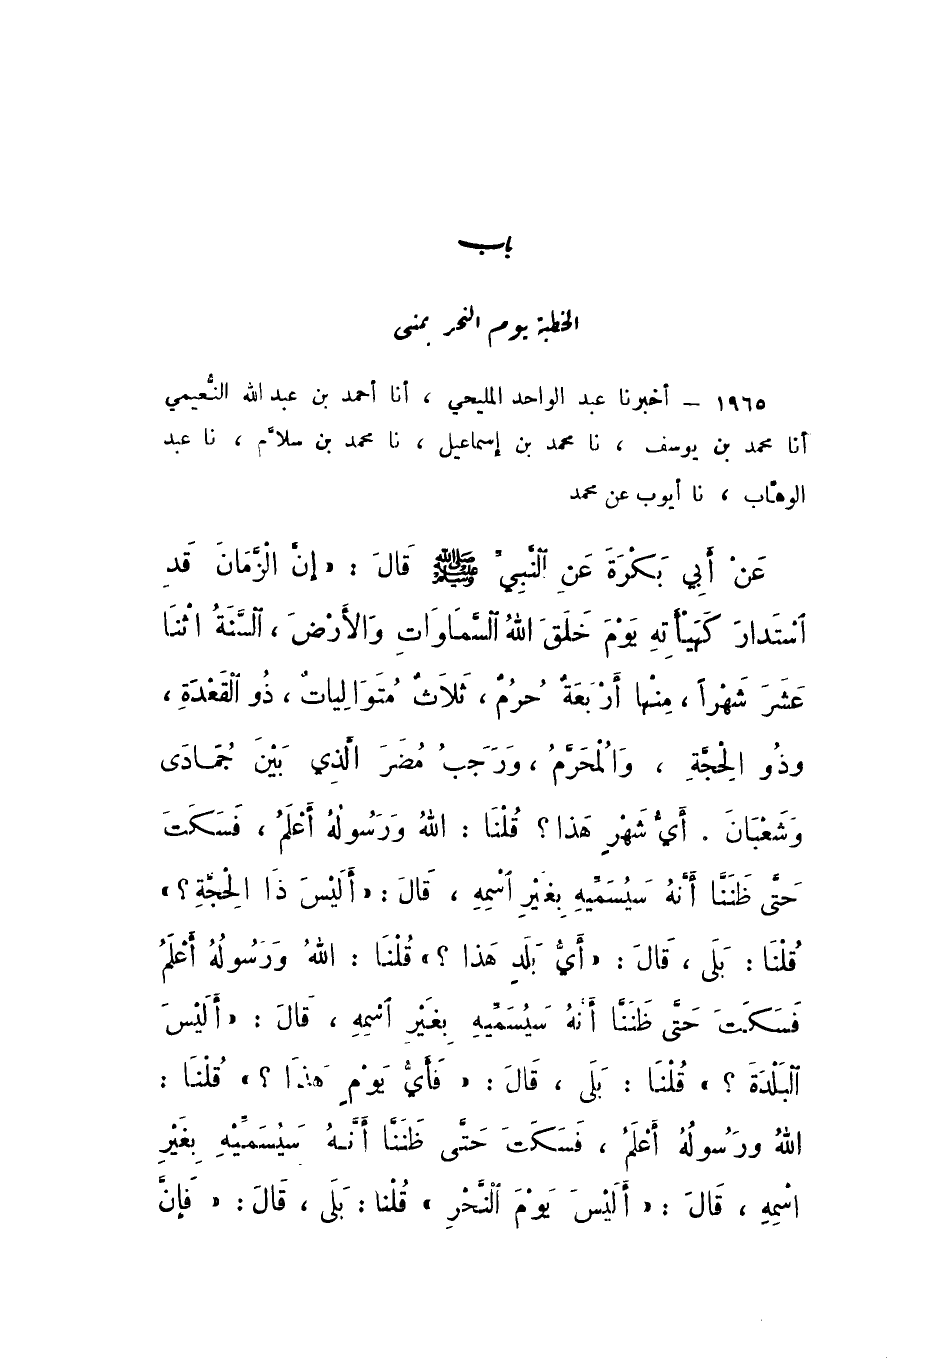 باب
الخطبة يوم النحر بمنى
١٩٦٥ – أخبرنا عبد الواحد المليحي ، أنا أحمد بن عبد الله النُّعيمي
أنا محمد بن يوسف ، نا محمد بن إسماعيل ، نا محمد بن سلاَّم ، نا عبد
الوهّاب ، نا أيوب عن محمد
عَنْ أَبِي بَكْرَةَ عَنِ ٱلنَّبِيِّ ﷺ قَالَ : « إِنَّ الْزَّمَانَ قَدِ
ٱسْتَدارَ كَهَيْأَتِهِ يَوْمَ خَلَقَ اللهُ ٱلسَّمَاوَاتِ وَالأَرْضَ ، ٱلسَّنَةُ اثْنَا
عَشَرَ شَهْراً ، مِنْها أَرْبَعَةٌ حُرُمٌ ، ثَلاَثٌ مُتَوَالِياتٌ ، ذُو ٱلْقَعْدَةِ ،
وذُو الْحِجَّةِ ، وَالْمُحَرَّمُ ، وَرَجَبُ مُضَرَ الَّذِي بَيْنَ جُمَادَى
وَشَعْبَانَ . أَيُّ شَهْرٍ هَذا ؟ قُلْنَا : اللهُ وَرَسُولُهُ أَعْلَمُ ، فَسَكَتَ
حَتَّى ظَنَنَّا أَنَّهُ سَيُسَمِّيهِ بِغَيْرِ ٱسْمِهِ ، قَالَ : « أَلَيْسَ ذَا الْحِجَّةِ ؟ »
قُلْنَا : بَلَى ، قَالَ : « أَيُّ بَلَدٍ هَذا ؟ » قُلْنَا : اللهُ وَرَسُولُهُ أَعْلَمُ
فَسَكَتَ حَتَّى ظَنَنَّا أَنَّهُ سَيُسَمِّيهِ بِغَيْرِ ٱسْمِهِ ، قَالَ : « أَلَيْسَ
ٱلْبَلْدَةَ ؟ » قُلْنَا : بَلَى ، قَالَ : « فَأَيُّ يَوْمٍ هَذَا ؟ » قُلْنَا :
اللهُ ورَسُولُهُ أَعْلَمُ ، فَسَكَتَ حَتَّى ظَنَنَّا أَنَّهُ سَيُسَمِّيْهِ بِغَيْرِ
اسْمِهِ ، قَالَ : « أَلَيْسَ يَوْمَ ٱلنَّحْرِ » قُلْنا : بَلَى ، قَالَ : « فَإِنَّ